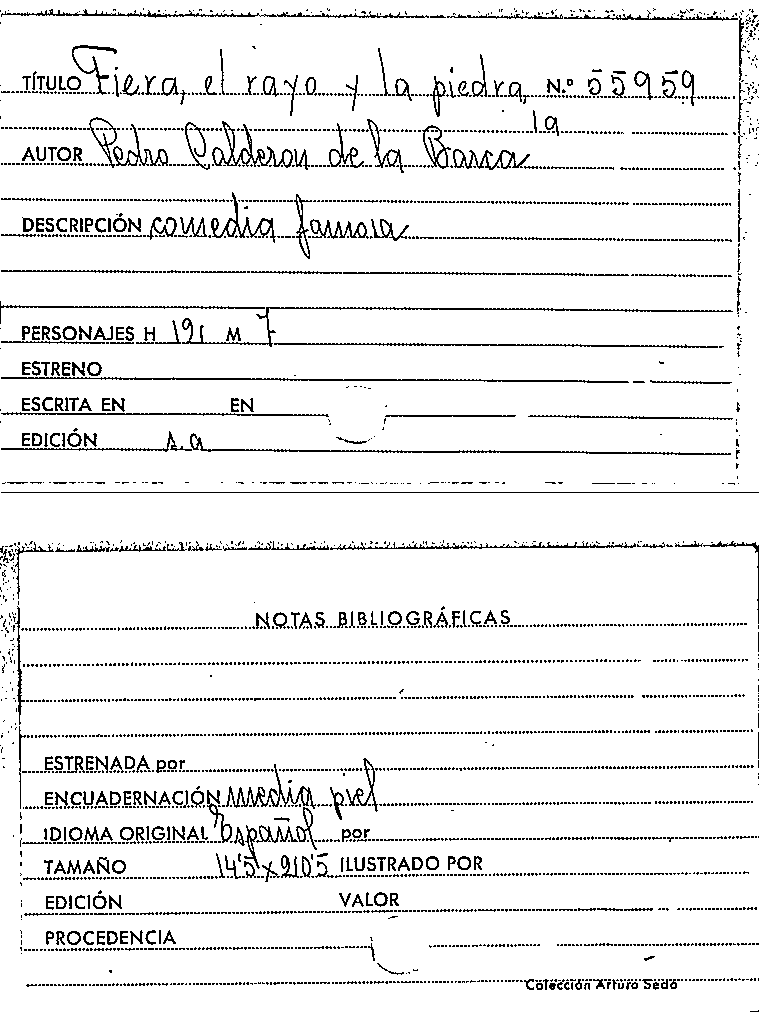 TÍTULO Fiera, el rayo y la piedra, N.º 55959
la
AUTOR Pedro Calderon de la Barca
DESCRIPCIÓN comedia famosa
PERSONAJES H 191 M 7
ESTRENO
ESCRITA EN EN
EDICIÓN s.a
NOTAS BIBLIOGRÁFICAS
ESTRENADA por
ENCUADERNACIÓN media piel
IDIOMA ORIGINAL Español por
TAMAÑO 14'5 x 210'5 ILUSTRADO POR
EDICIÓN VALOR
PROCEDENCIA
Colección Arturo Sedó